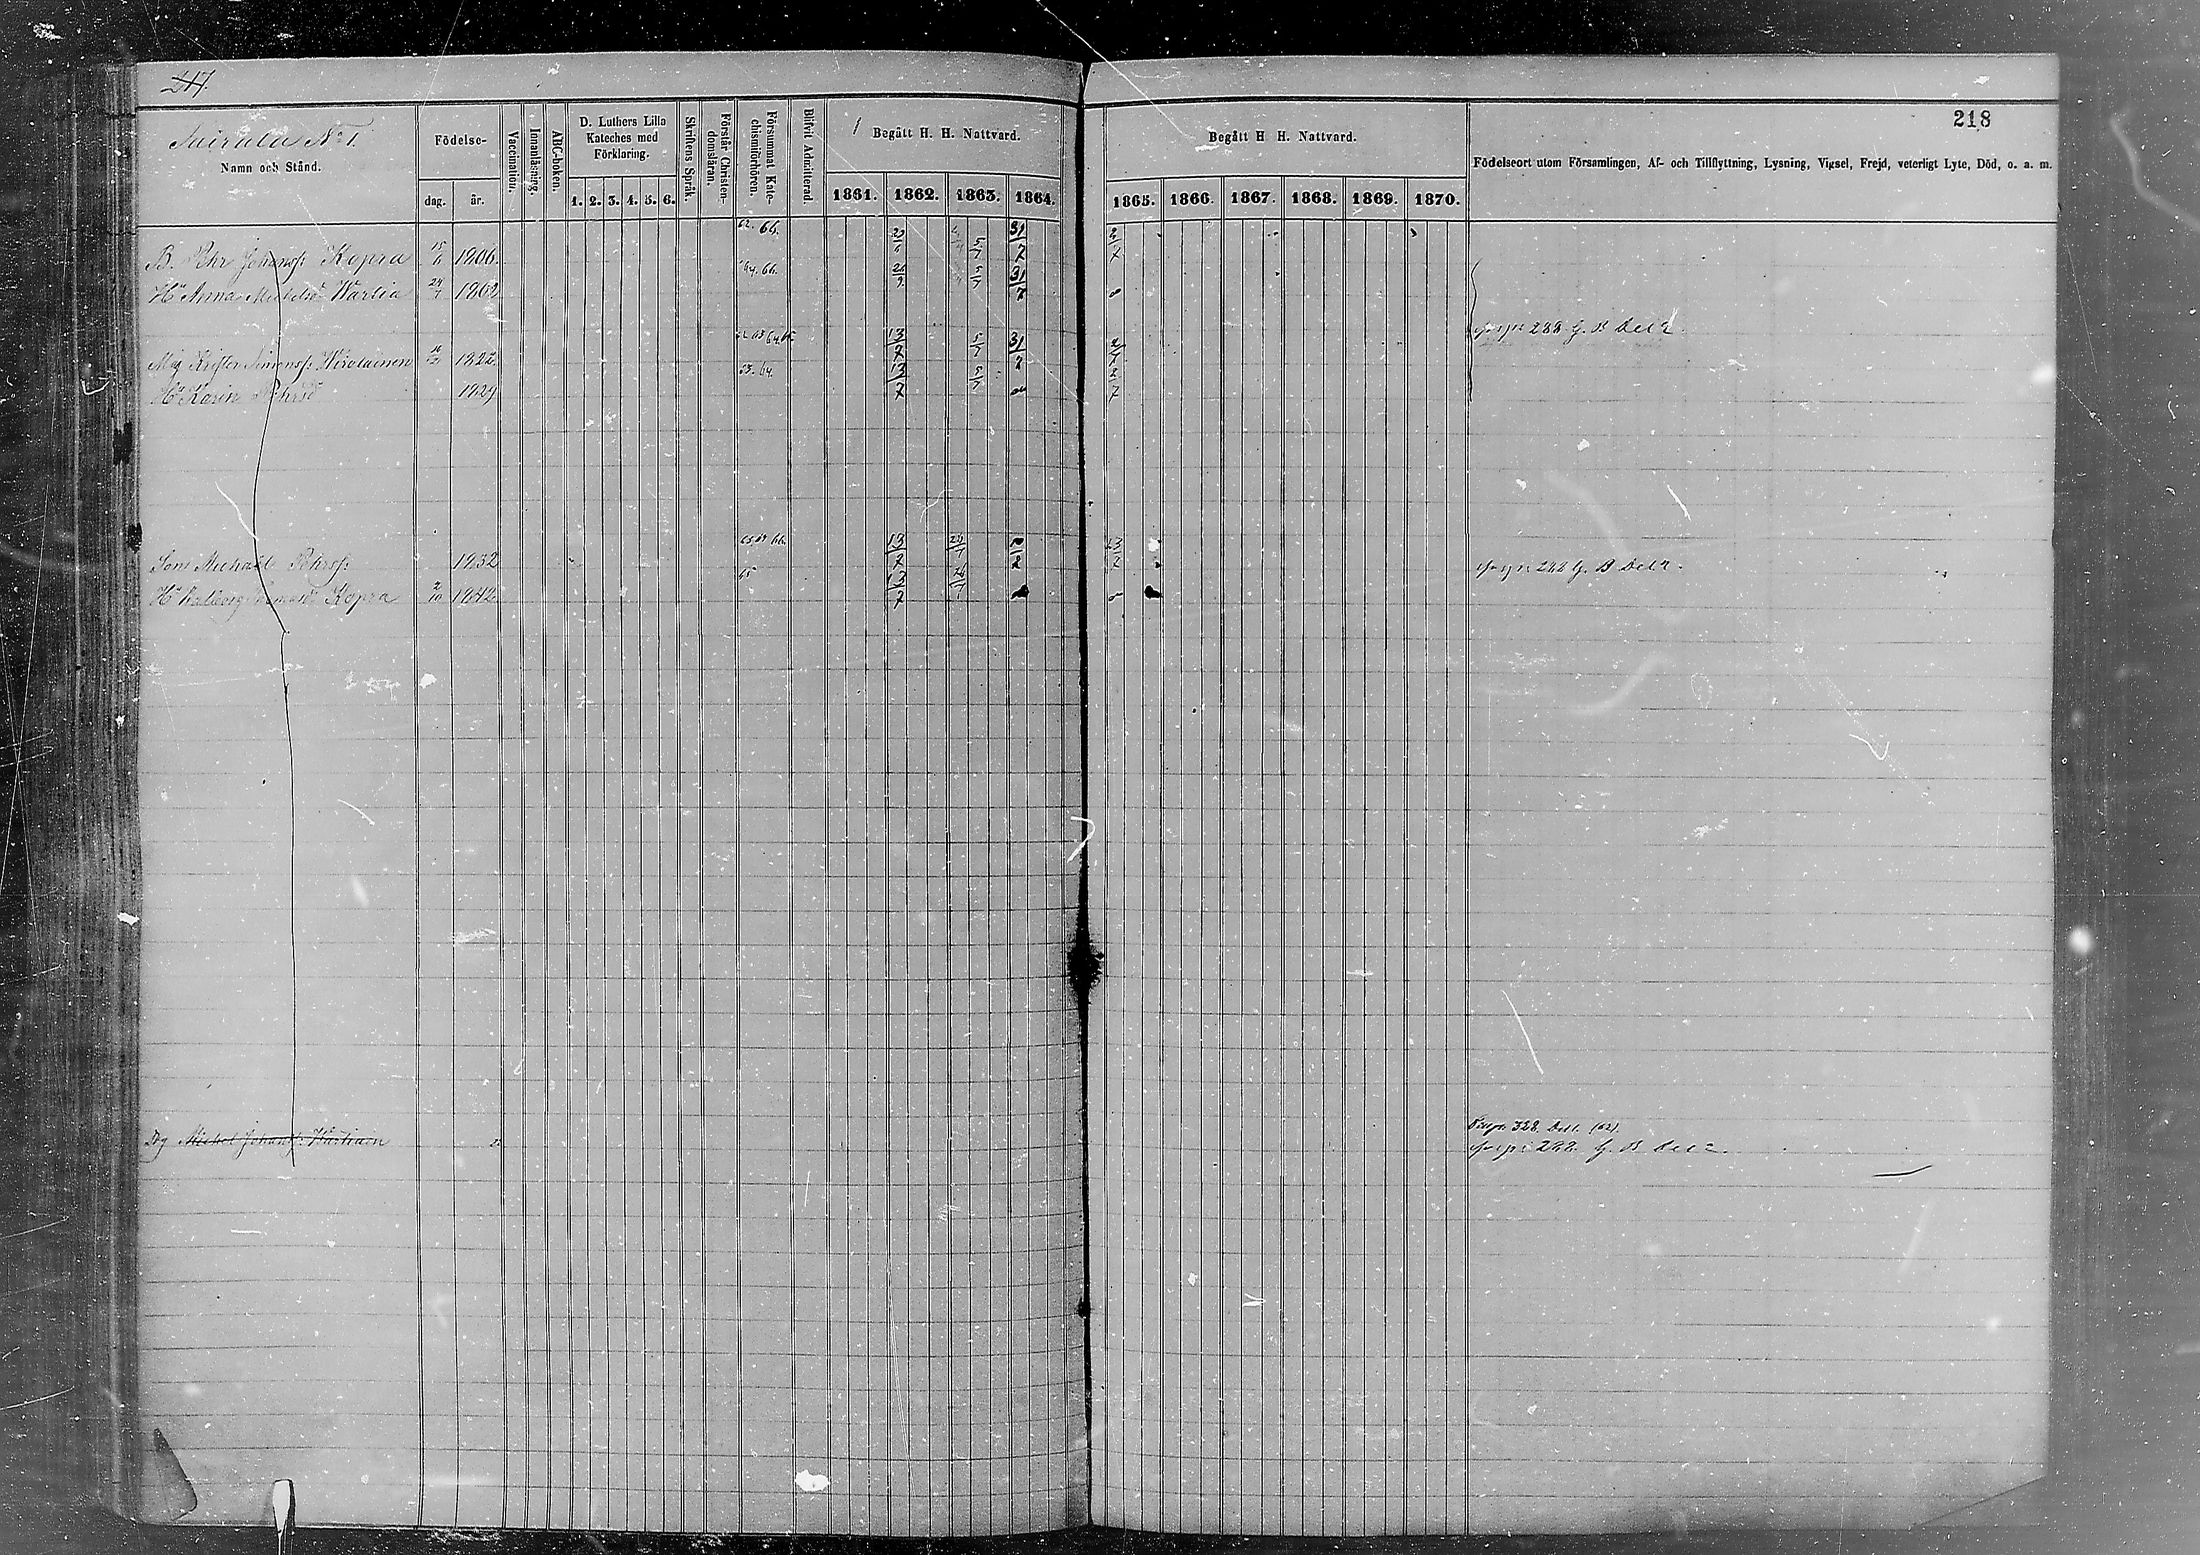 217.
218
Nairala No 1.
Namn och Stånd.
Födelse-
dag.
år.
Vaccination.
Innanläsning.
ABC-boken.
D. Luthers Lilla
Kateches med
Förklaring.
1. 2. 3. 4. 5. 6.
Skriftens Språk.
Förstår Christen-
domsläran.
Försummat Kate-
chismiförhören.
Blifvit Admitterad
Begått H. H. Nattvard.
1861. 1862. 1863. 1864.
Begått H. H. Nattvard.
1865. 1866. 1867. 1868. 1869. 1870.
Födelseort utom Församlingen, Af- och Tillflyttning, Lysning, Vigsel, Frejd, veterligt Lyte, Död, o. a. m.
B. Pehr Johanss: Kopra 15/6 1806. 62. 66. 31/7 2/7
Hu Anna Michelsd Wartia 24/7 1802 64. 66. 5/7 31/7
288 G. B Del 2.
Måg Krister Simonss: Wirolainen 1822. 13/7 5/7 31/7 2/7
Hu Karin Pehrsd 1829 63. 64. 13/7 5/7 2/7
Son Michael Pehrss: 1832 66. 13/7
288 G. B Del 2.
Hu Walborg Kopra 2/10 1842 65 13/7
Dg Michel Johanss: Wartiain
328. Del 1. (62).
288. G. B Del 2.